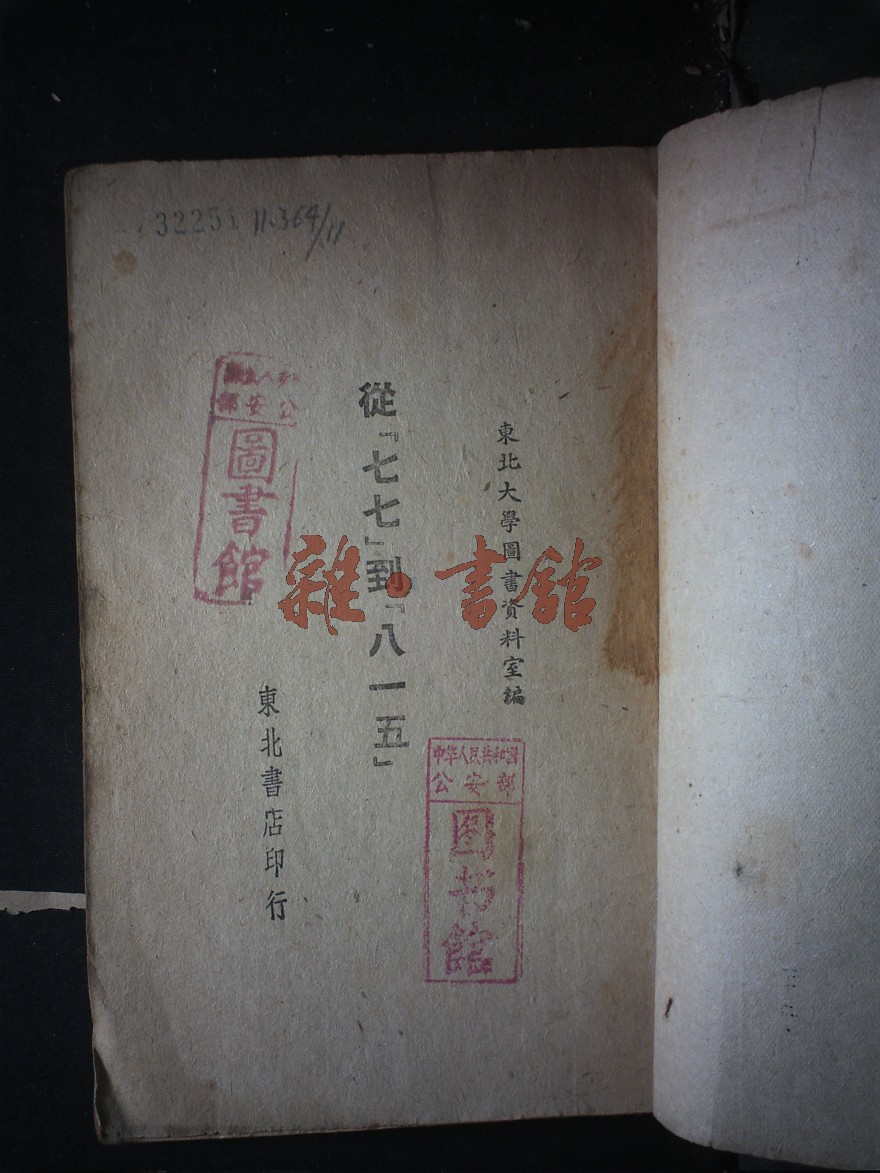 32251 11.364/11
東北大學圖書資料室編
從「七七」到「八一五」
東北書店印行
公安部
圖書館
中华人民共和国
公安部
图书館
雜·書館